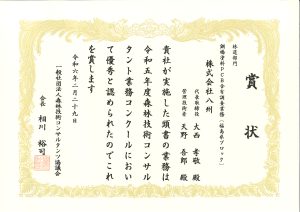 賞状
林道部門
鋼橋塗料PCB含有調査業務(福島県ブロック)
株式会社八州
代表取締役 大西孝敬殿
管理技術者 天野吾郎殿
貴社が実施した頭書の業務は
令和五年度森林技術コンサル
タント業務コンクールにおい
て優秀と認められたのでこれ
を賞します
令和六年二月二十九日
一般社団法人森林技術コンサルタンツ協議会
会長 相川裕司